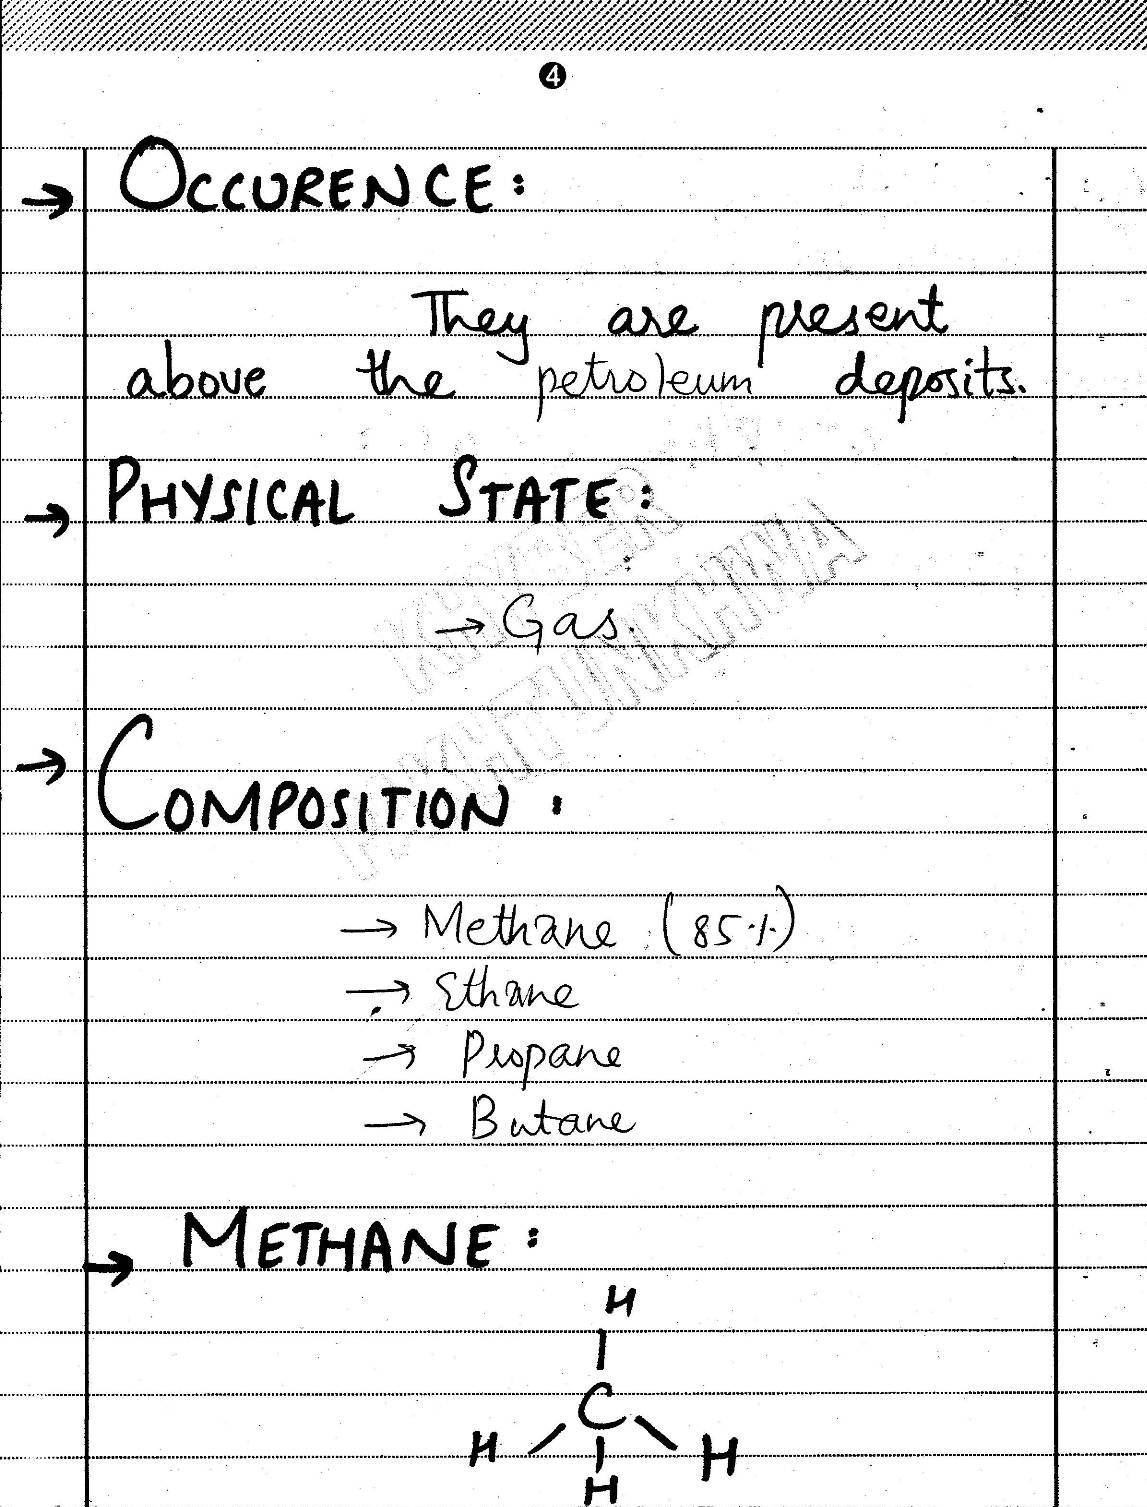 4
→ OCCURENCE:
They are present
above the petroleum deposits.
→ PHYSICAL STATE:
→ Gas.
KHYBER
PAKHTUNKHWA
→ COMPOSITION:
→ Methane (85%)
→ Ethane
→ Propane
→ Butane
→ METHANE:
H
C
H H
H